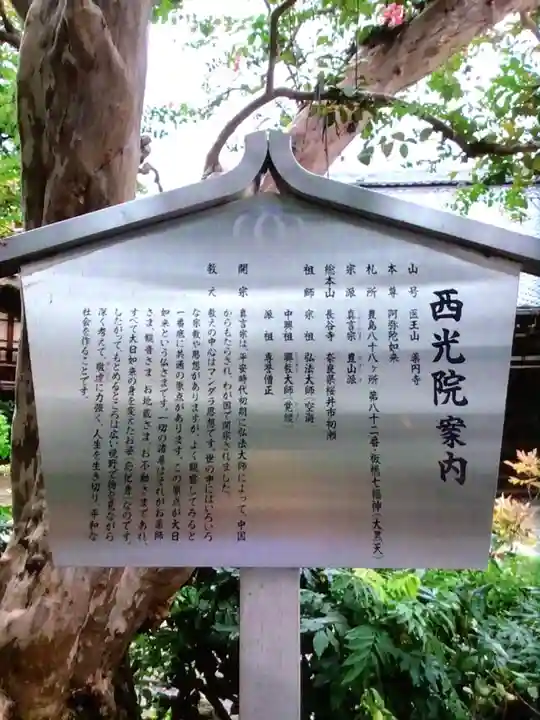 西光院案内
山号 医王山 薬円寺
本尊 阿弥陀如来
札所 豊島八十八ヶ所 第八十二番・板橋七福神(大黒天)
宗派 真言宗 豊山派
総本山 長谷寺 奈良県桜井市初瀬
祖師 宗祖 弘法大師(空海)
中興祖 興教大師(覚鑁)
派祖 専誉僧正
開宗 真言宗は、平安時代初期に弘法大師によって、中国
からもたらされ、わが国で開宗されました。
教え 教えの中心はマンダラ思想です。世の中にはいろいろ
な宗教や思想がありますが、よく観察してみると
一番底に共通の原点があります。この原点が大日
如来という仏さまです。一切の諸尊はそれがお薬師
さま、観音さま、お地蔵さま、お不動さまであれ、
すべて大日如来の身を変えたお姿(応化身)なのです。
したがってもとめるところは広い視野で物を見ながら
深く考えて、敬虔に力強く、人生を生き切り、平和な
社会を作ることです。